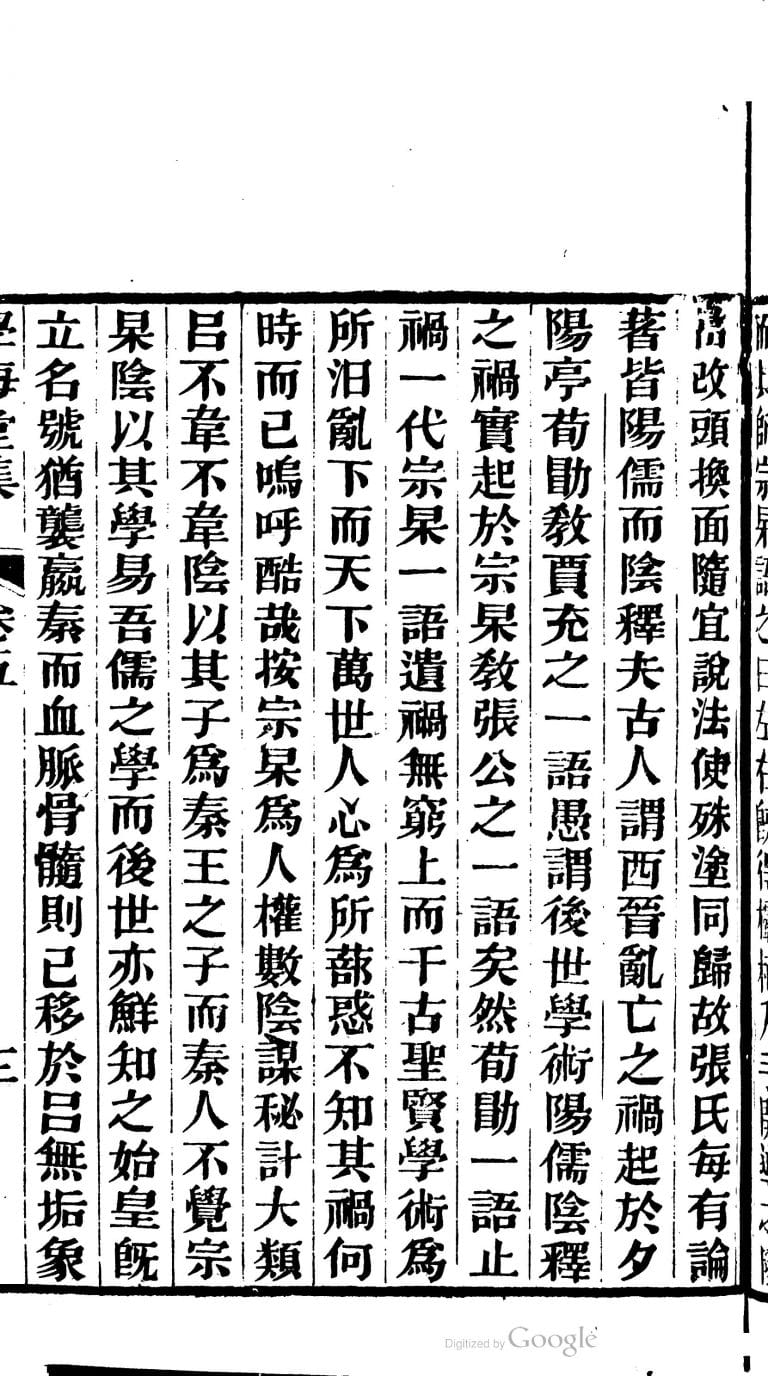 改頭換面隨宜說法使殊塗同歸故張氏每有論
著皆陽儒而陰釋夫古人謂西晉亂亡之禍起於夕
陽亭荀勖教賈充之一語愚謂後世學術陽儒陰釋
之禍實起於宗杲教張公之一語矣然荀勖一語止
禍一代宗杲一語遺禍無窮上而千古聖賢學術爲
所汨亂下而天下萬世人心爲所蔀惑不知其禍何
時而已嗚呼酷哉按宗杲爲人權數陰謀秘計大類
呂不韋不韋陰以其子爲秦王之子而秦人不覺宗
杲陰以其學易吾儒之學而後世亦鮮知之始皇旣
立名號猶襲嬴秦而血脈骨髓則已移於呂無垢象
學海堂集
卷五
三
Digitized by Google